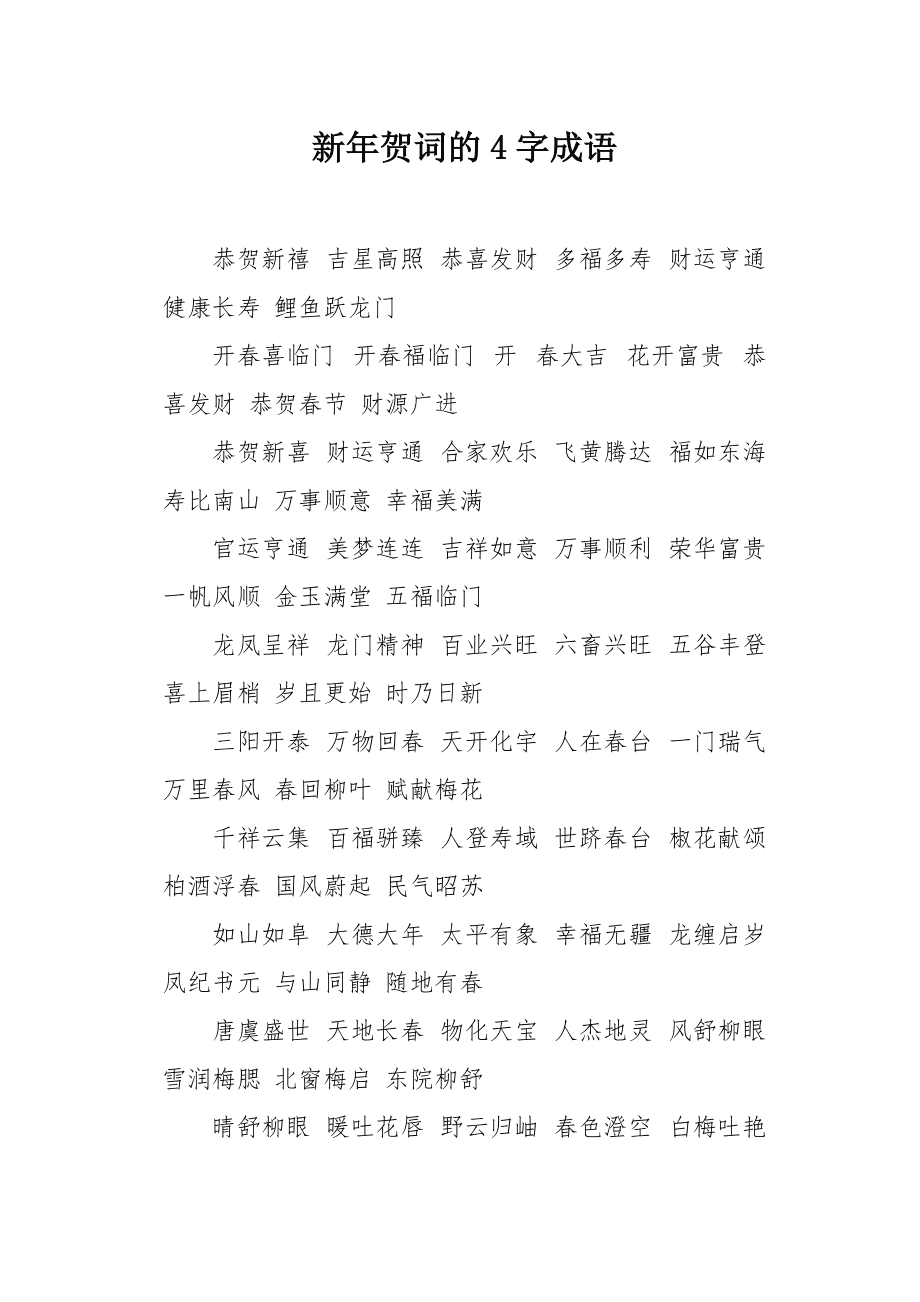 新年贺词的4字成语
恭贺新禧 吉星高照 恭喜发财 多福多寿 财运亨通
健康长寿 鲤鱼跃龙门
开春喜临门 开春福临门 开 春大吉 花开富贵 恭
喜发财 恭贺春节 财源广进
恭贺新喜 财运亨通 合家欢乐 飞黄腾达 福如东海
寿比南山 万事顺意 幸福美满
官运亨通 美梦连连 吉祥如意 万事顺利 荣华富贵
一帆风顺 金玉满堂 五福临门
龙凤呈祥 龙门精神 百业兴旺 六畜兴旺 五谷丰登
喜上眉梢 岁且更始 时乃日新
三阳开泰 万物回春 天开化宇 人在春台 一门瑞气
万里春风 春回柳叶 赋献梅花
千祥云集 百福骈臻 人登寿域 世跻春台 椒花献颂
柏酒浮春 国风蔚起 民气昭苏
如山如阜 大德大年 太平有象 幸福无疆 龙缠启岁
凤纪书元 与山同静 随地有春
唐虞盛世 天地长春 物化天宝 人杰地灵 风舒柳眼
雪润梅腮 北窗梅启 东院柳舒
晴舒柳眼 暖吐花唇 野云归岫 春色澄空 白梅吐艳